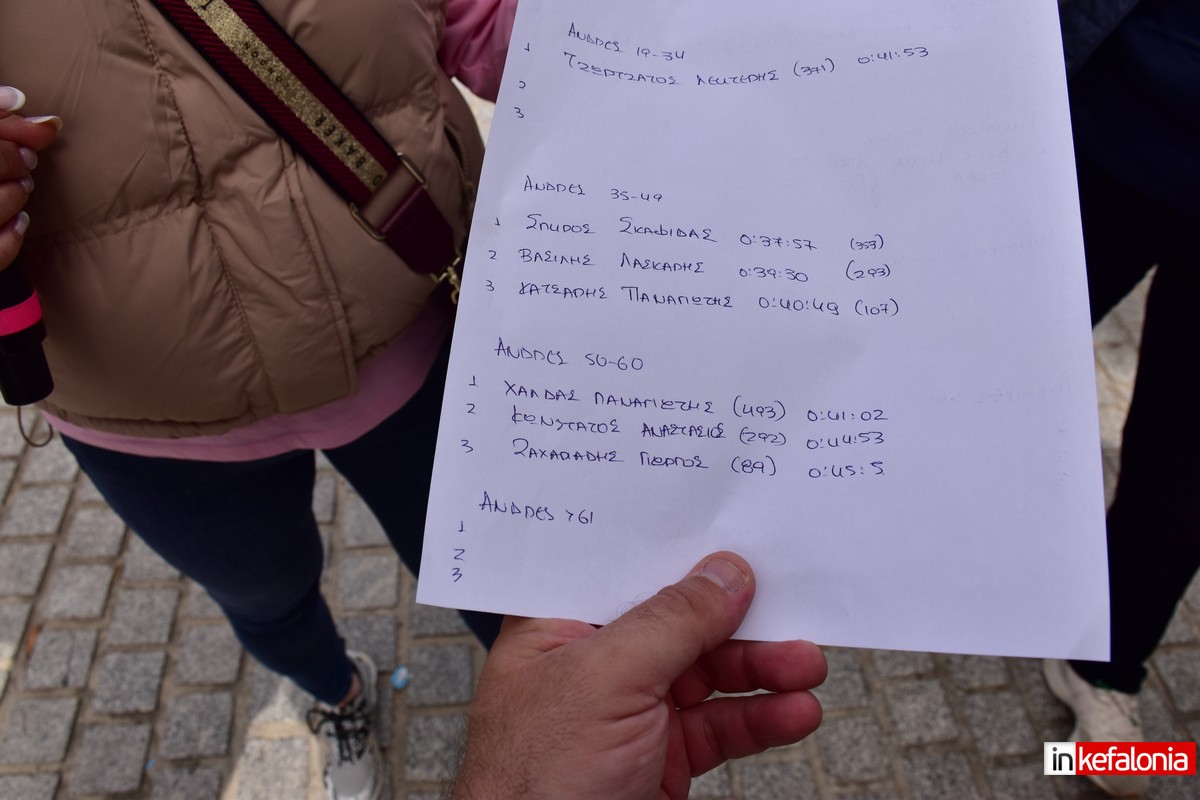 ΑΝΔΡΕΣ 19-34
1 ΤΖΩΡΤΖΑΤΟΣ ΛΕΥΤΕΡΗΣ (371) 0:41:53
2
3
ΑΝΔΡΕΣ 35-49
1 ΣΠΥΡΟΣ ΣΚΑΦΙΔΑΣ 0:37:57 (353)
2 ΒΑΣΙΛΗΣ ΛΑΣΚΑΡΗΣ 0:39:30 (293)
3 ΚΑΤΣΑΡΗΣ ΠΑΝΑΓΙΩΤΗΣ 0:40:49 (107)
ΑΝΔΡΕΣ 50-60
1 ΧΑΛΔΑΣ ΠΑΝΑΓΙΩΤΗΣ (493) 0:41:02
2 ΚΩΝΣΤΑΤΟΣ ΑΝΑΣΤΑΣΙΟΣ (292) 0:44:53
3 ΖΑΧΑΡΑΔΗΣ ΓΙΩΡΓΟΣ (89) 0:45:5
ΑΝΔΡΕΣ >61
1
2
3
inkefalonia